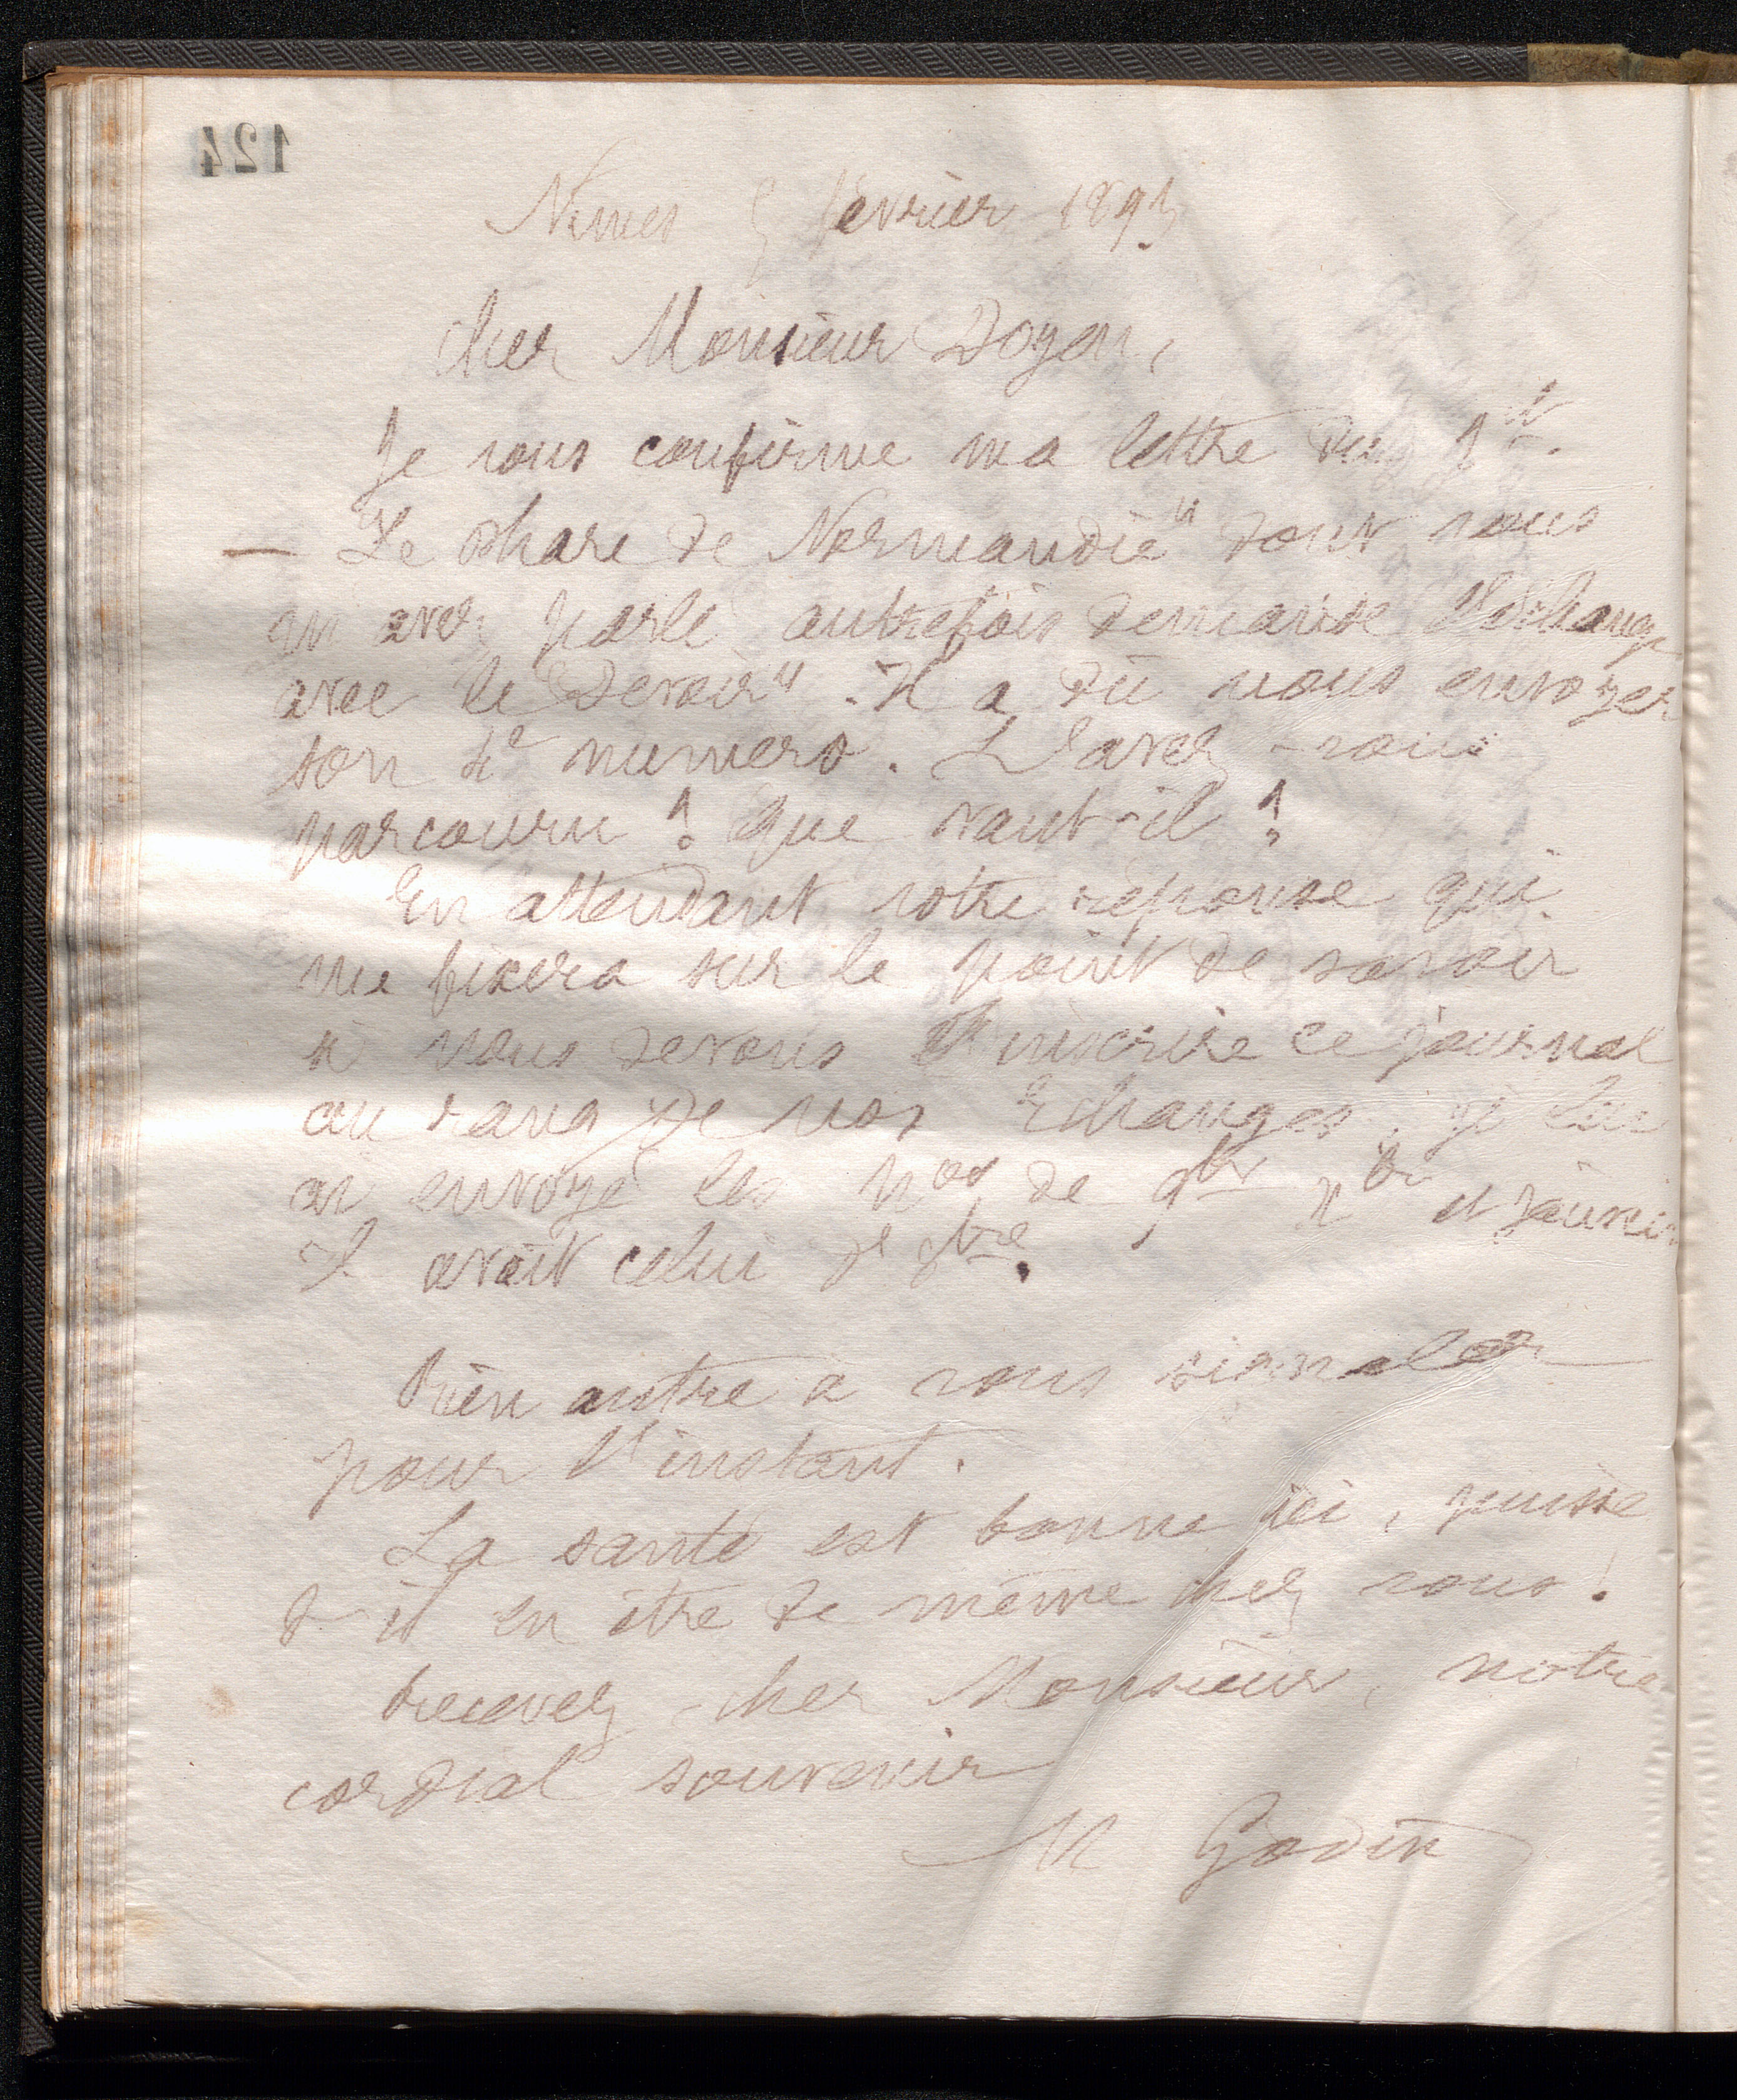 124
Nimes 5 février 1893
Cher Monsieur Doyen,
Je vous confirme ma lettre du 1er.
— Le Phare de Normandie" dont vous
m'avez parlé autrefois demande l'échange
avec le Devoir". Il a dû vous envoyer
son 4e numéro. L'avez-vous
parcouru ? Que vaut-il ?
En attendant votre réponse qui
me fixera sur le point de savoir
si nous devons inscrire ce journal
au rang de nos Echanges, je lui
ai envoyé les nos de 9bre Xbre et Janvier
Il avait celui d' 8bre.
Rien autre à vous signaler
pour l'instant.
La santé est bonne ici, puisse
t-il en être de même chez vous !
Recevez, cher Monsieur, notre
cordial souvenir
M Godin